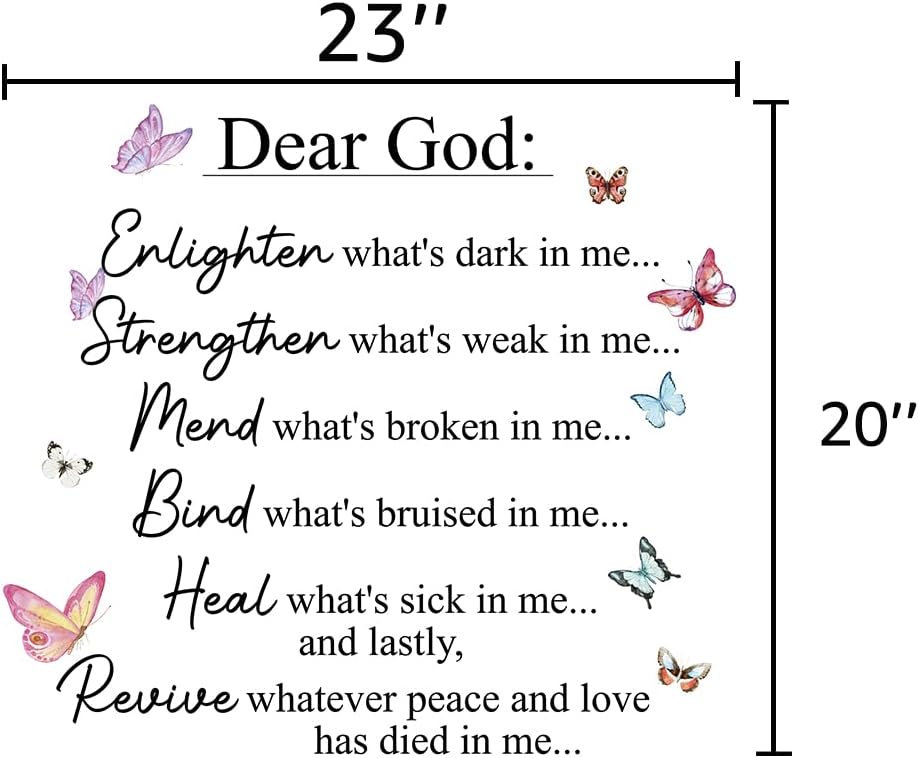 23’’
Dear God:
Enlighten what's dark in me...
Strengthen what's weak in me...
Mend what's broken in me...
20’’
Bind what's bruised in me...
Heal what's sick in me...
and lastly,
Revive whatever peace and love
has died in me...